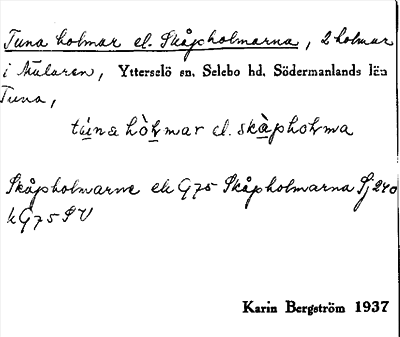 Tuna holmar el. Skåpholmarna, 2 holmar
i Mälaren, Ytterselö sn. Selebo hd. Södermanlands län
Tuna,
tùna hòɫmar el. skàphoɫma
Skåpholmarne ek G75 Skåpholmarna Sj 240
k G75 SV
Karin Bergström 1937